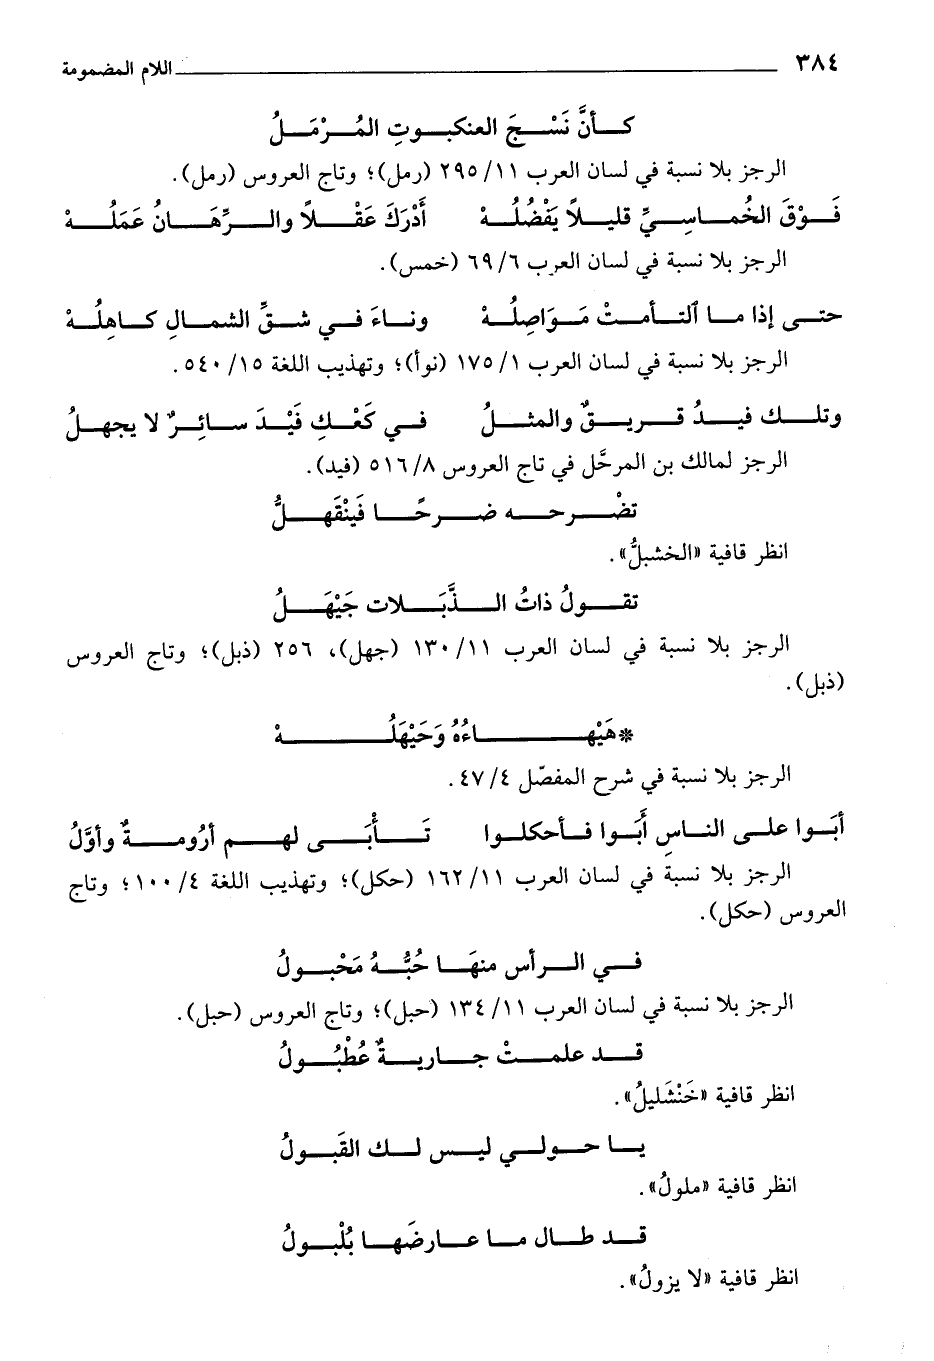 ٣٨٤ اللام المضمومة
كأنَّ نَسْجَ العنكبوتِ المُرْمَلُ
الرجز بلا نسبة في لسان العرب ٢٩٥/١١ (رمل)؛ وتاج العروس (رمل).
فَوْقَ الخُماسِيِّ قليلاً يَفْضُلُهْ أَدْرَكَ عَقْلاً والرِّهَانُ عَمَلُهْ
الرجز بلا نسبة في لسان العرب ٦٩/٦ (خمس).
حتى إذا ما ٱلتأمتْ مَوَاصِلُهْ وناءَ في شقِّ الشمالِ كاهِلُهْ
الرجز بلا نسبة في لسان العرب ١٧٥/١ (نوأ)؛ وتهذيب اللغة ٥٤٠/١٥.
وتلك فيدُ قريقٌ والمثلُ في كَعْكِ فَيْدَ سائِرٌ لا يجهلُ
الرجز لمالك بن المرحَّل في تاج العروس ٥١٦/٨ (فيد).
تضْرحه ضرحًا فَيَنْقَهلُّ
انظر قافية «الخشبلُّ».
تقولُ ذاتُ الذَّبَلات جَيْهَلُ
الرجز بلا نسبة في لسان العرب ١٣٠/١١ (جهل)، ٢٥٦ (ذبل)؛ وتاج العروس
(ذبل).
*هَيْهاءُهُ وَحَيْهَلُهْ
الرجز بلا نسبة في شرح المفصّل ٤٧/٤.
أبَوا على الناسِ أَبَوا فأحكلوا تَأْبَى لهم أرُومةٌ وأوَّلُ
الرجز بلا نسبة في لسان العرب ١٦٢/١١ (حكل)؛ وتهذيب اللغة ١٠٠/٤؛ وتاج
العروس (حكل).
في الرأس منهَا حُبُّهُ مَحْبولُ
الرجز بلا نسبة في لسان العرب ١٣٤/١١ (حبل)؛ وتاج العروس (حبل).
قد علمتْ جاريةٌ عُطْبُولُ
انظر قافية «خَنْشَليلُ».
يا حولي ليس لك القَبولُ
انظر قافية «ملولُ».
قد طال ما عارضَها بُلْبولُ
انظر قافية «لا يزولُ».